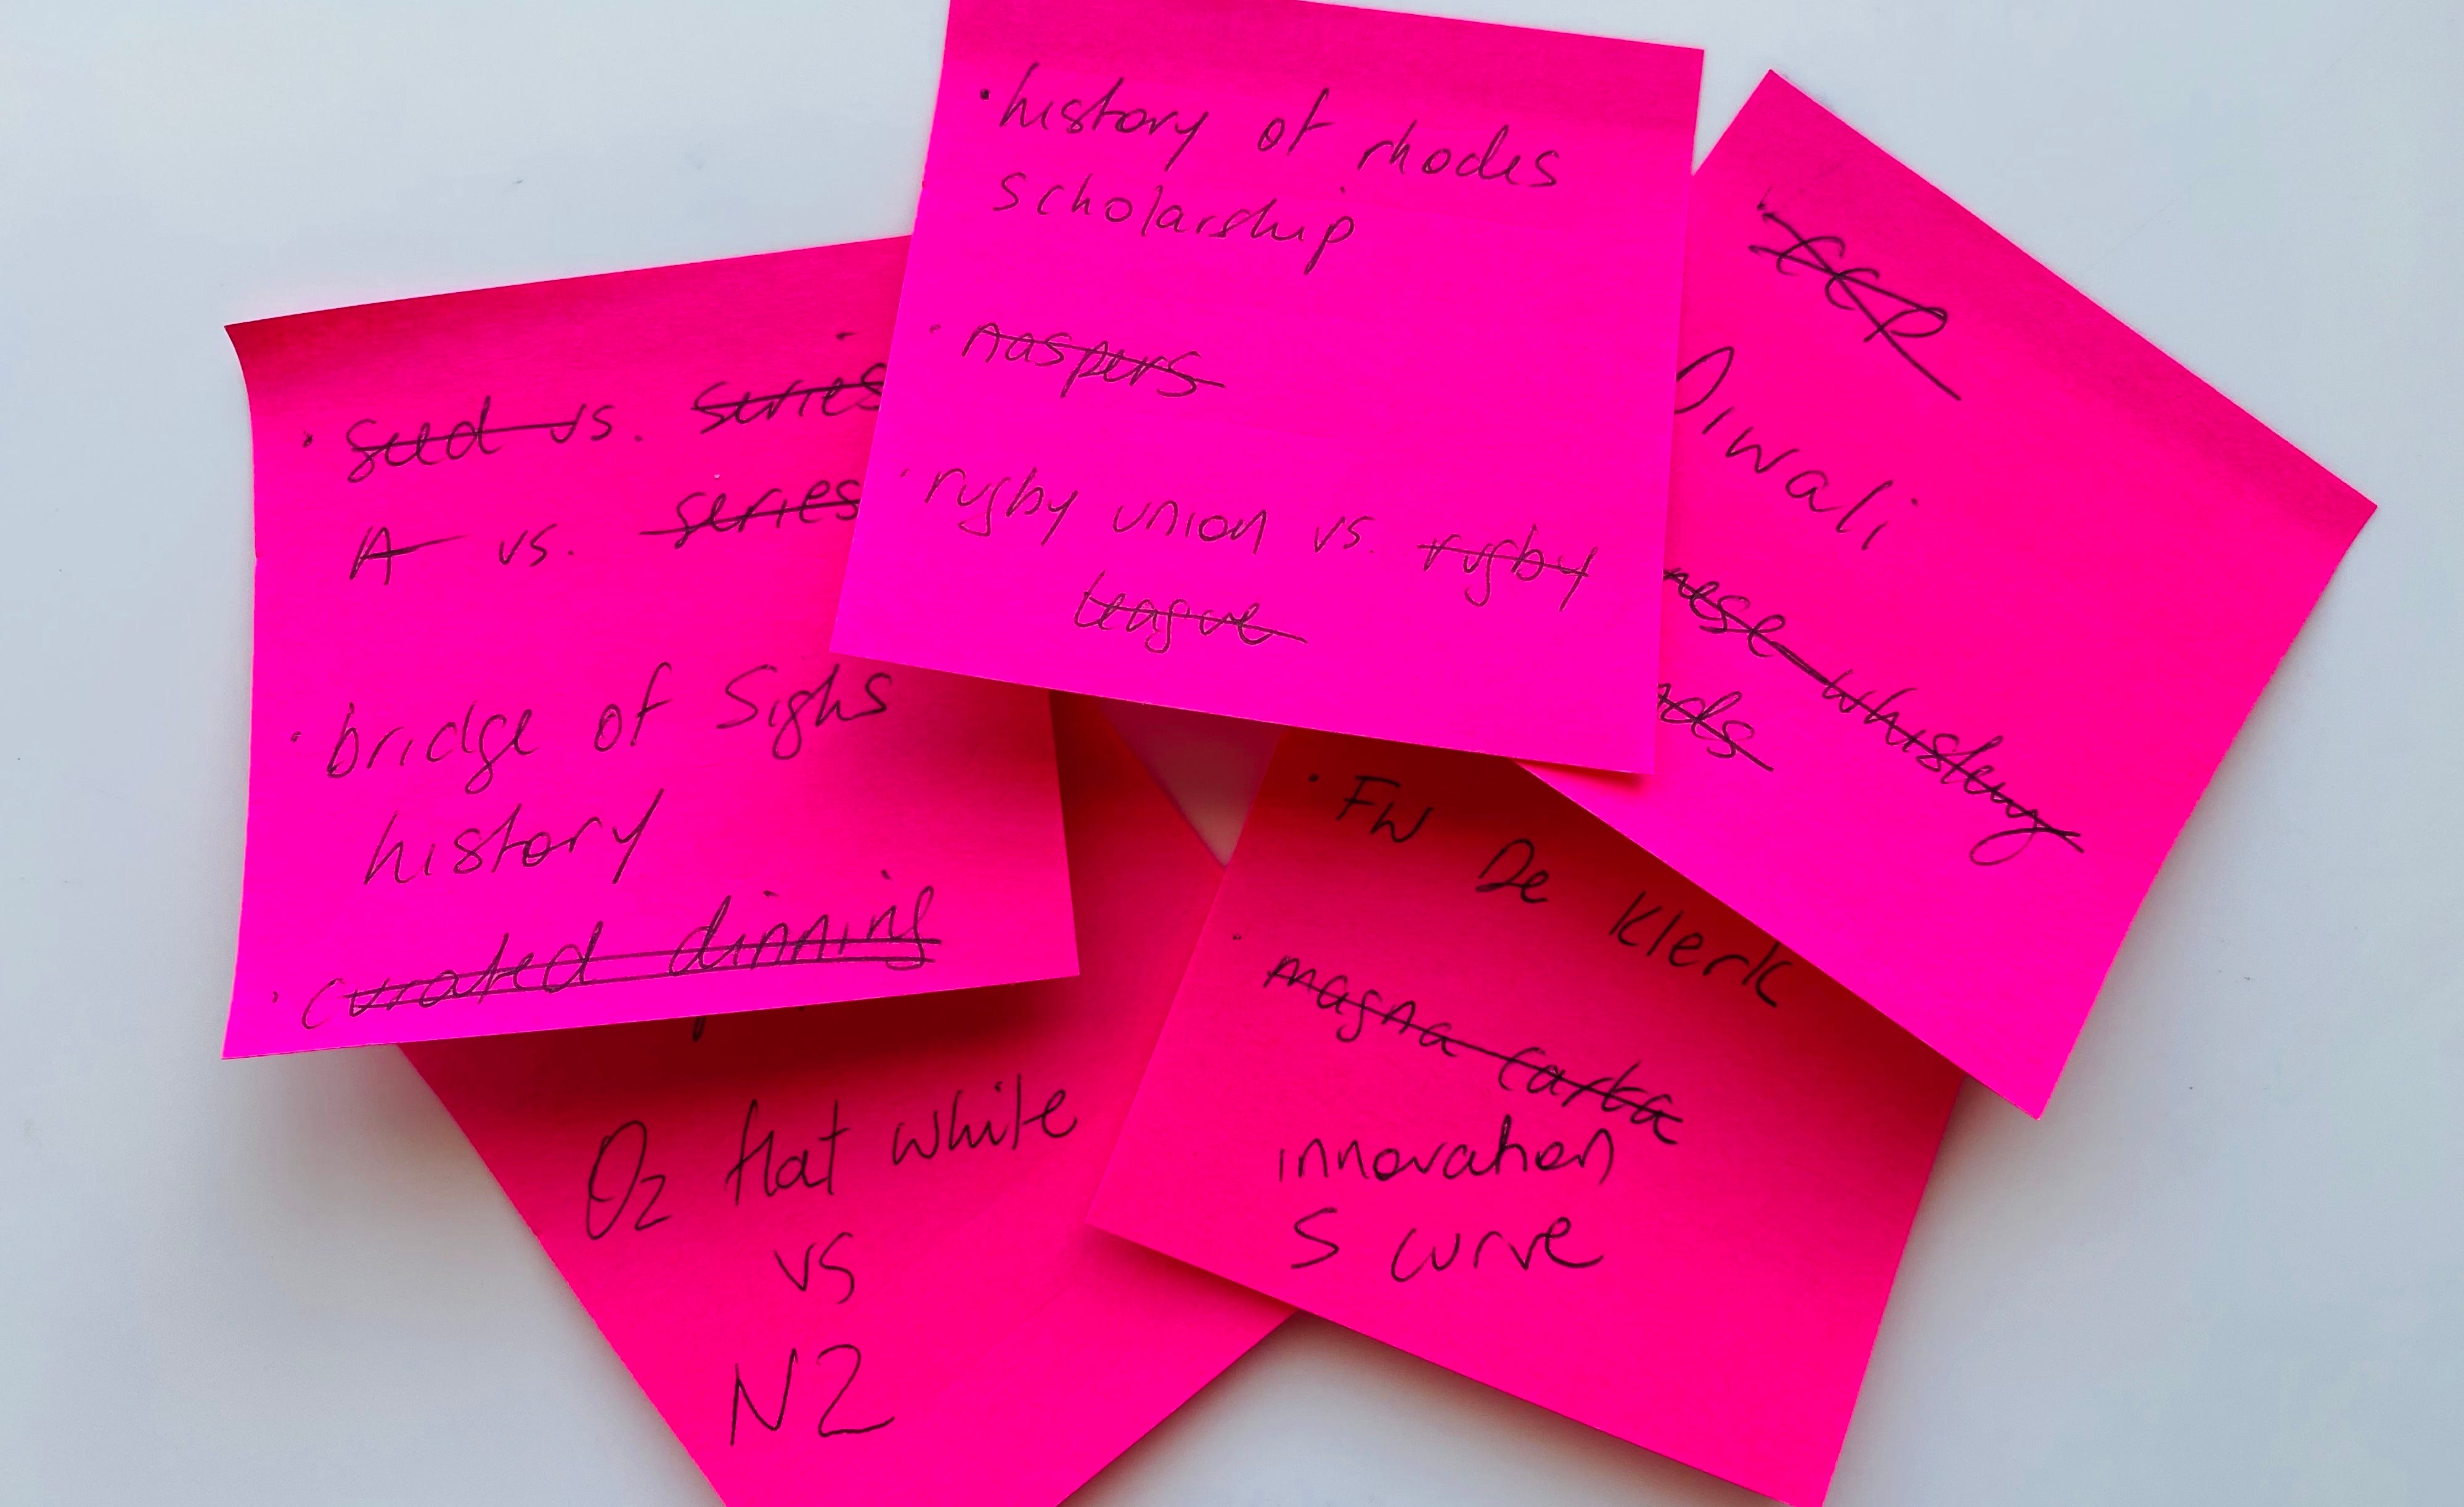 · history of rhodes
scholarship
· naspers
· rugby union vs. rugby
league
· seed vs. series
A vs. series
· bridge of Sighs
history
· curated dinning
Diwali
whiskey
· FW De Klerk
· magna carta
innovation
S curve
OZ flat white
vs
NZ